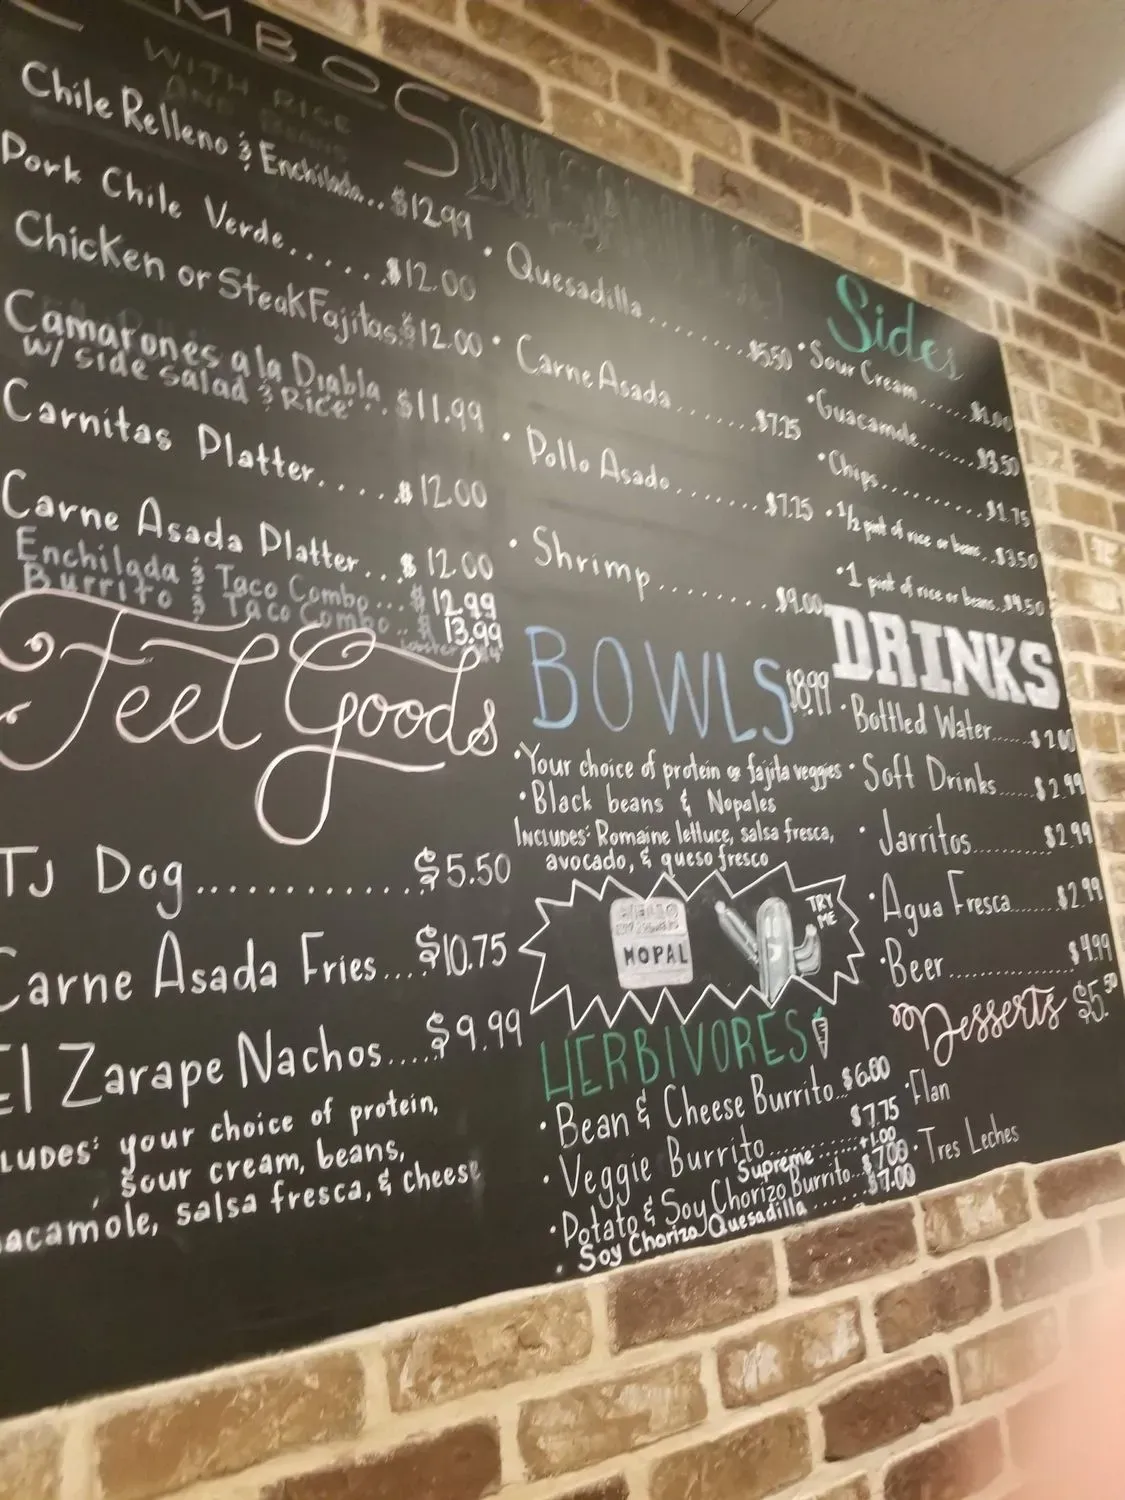 MBOS
WITH RICE
AND BEANS
Chile Relleno & Enchilada... $12.99
Pork Chile Verde...... $12.00
Chicken or Steak Fajitas. $12.00
Camarones a la Diabla .. $11.99
w/ side salad & Rice
Carnitas Platter..... $12.00
Carne Asada Platter... $12.00
Enchilada & Taco Combo... $12.99
Burrito & Taco Combo.. $13.99
Feel Goods
TJ Dog............. $5.50
Carne Asada Fries.... $10.75
El Zarape Nachos..... $9.99
LUDES: your choice of protein,
sour cream, beans,
acamole, salsa fresca, & cheese
• Quesadilla......... $5.50
• Carne Asada........ $7.25
• Pollo Asado........ $7.25
• Shrimp......... $9.00
BOWLS $8.99
• Your choice of protein or fajita veggies
• Black beans & Nopales
INCLUDES: Romaine lettuce, salsa fresca,
avocado, & queso fresco
NOPAL
TRY
ME
HERBIVORES
• Bean & Cheese Burrito... $6.00
• Veggie Burrito.......... $7.75
Supreme ....... +1.00
• Potato & Soy Chorizo Burrito... $7.00
• Soy Chorizo Quesadilla ...... $7.00
Sides
• Sour Cream...... $1.00
• Guacamole....... $3.50
• Chips........... $1.75
• 1/2 pint of rice or beans.. $3.50
• 1 pint of rice or beans.. $4.50
DRINKS
• Bottled Water...... $2.00
• Soft Drinks...... $2.99
• Jarritos.......... $2.99
• Agua Fresca....... $2.99
• Beer.............. $4.99
Desserts $5.50
• Flan
• Tres Leches